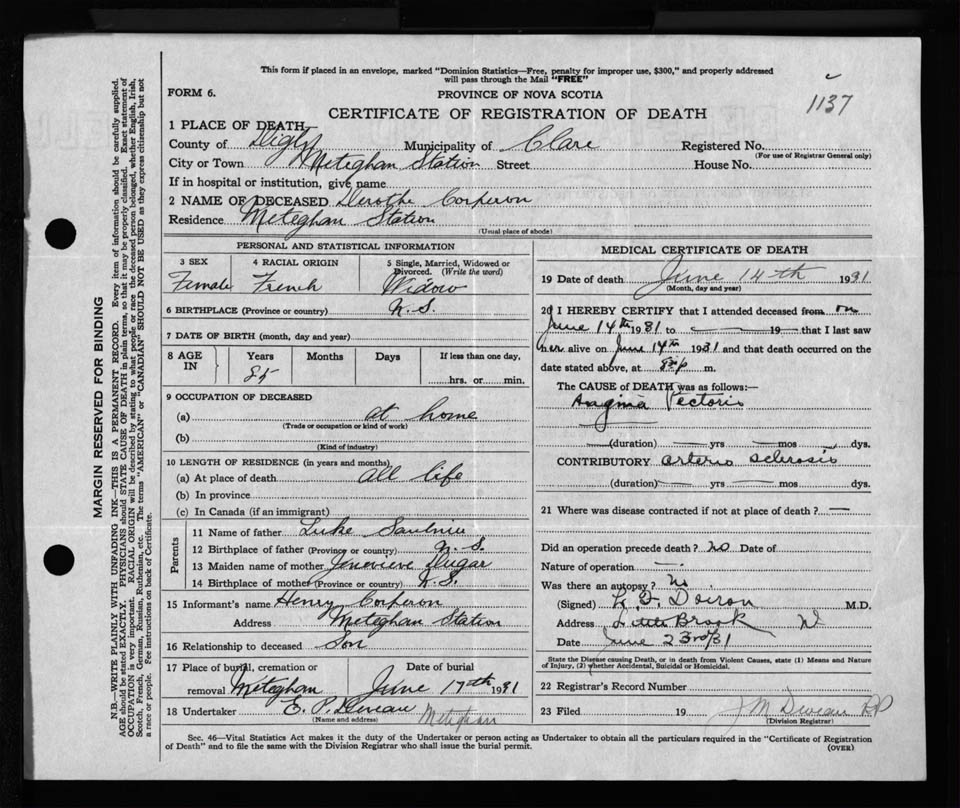 This form if placed in an envelope, marked "Dominion Statistics—Free, penalty for improper use, $300," and properly addressed
will pass through the Mail "FREE"
FORM 6.
PROVINCE OF NOVA SCOTIA
1137
CERTIFICATE OF REGISTRATION OF DEATH
1 PLACE OF DEATH
County of Digby Municipality of Clare Registered No.
(For use of Registrar General only)
City or Town Meteghan Station Street House No.
If in hospital or institution, give name
2 NAME OF DECEASED Dorothe Corperon
Residence Meteghan Station
(Usual place of abode)
PERSONAL AND STATISTICAL INFORMATION
3 SEX 4 RACIAL ORIGIN 5 Single, Married, Widowed or
Divorced. (Write the word)
Female French Widow
6 BIRTHPLACE (Province or country) N.S.
7 DATE OF BIRTH (month, day and year)
8 AGE IN Years Months Days If less than one day,
85 hrs. or min.
9 OCCUPATION OF DECEASED
(a) at home
(Trade or occupation or kind of work)
(b)
(Kind of industry)
10 LENGTH OF RESIDENCE (in years and months)
(a) At place of death all life
(b) In province
(c) In Canada (if an immigrant)
Parents
11 Name of father Luke Saulnier
12 Birthplace of father (Province or country) N.S.
13 Maiden name of mother Genevieve Dugas
14 Birthplace of mother (Province or country) N.S.
15 Informant's name Henry Corperon
Address Meteghan Station
16 Relationship to deceased Son
17 Place of burial, cremation or Date of burial
removal Meteghan June 17th 1931
18 Undertaker E. P. Deveau Meteghan
(Name and address)
MEDICAL CERTIFICATE OF DEATH
19 Date of death June 14th 1931
(Month, day and year)
20 I HEREBY CERTIFY that I attended deceased from on
June 14th 1931 to — 19— that I last saw
her alive on June 14th 1931 and that death occurred on the
date stated above, at m.
The CAUSE of DEATH was as follows:—
Angina Pectoris
(duration) — yrs — mos — dys.
CONTRIBUTORY arterio sclerosis
(duration) — yrs. — mos. — dys.
21 Where was disease contracted if not at place of death? —
Did an operation precede death? No Date of
Nature of operation —
Was there an autopsy? No
(Signed) Doiron M.D.
Address Little Brook
Date June 23rd/31
State the Disease causing Death, or in death from Violent Causes, state (1) Means and Nature
of Injury, (2) whether Accidental, Suicidal or Homicidal.
22 Registrar's Record Number
23 Filed 19 J M Deveau
(Division Registrar)
Sec. 46—Vital Statistics Act makes it the duty of the Undertaker or person acting as Undertaker to obtain all the particulars required in the "Certificate of Registration
of Death" and to file the same with the Division Registrar who shall issue the burial permit.
(OVER)
MARGIN RESERVED FOR BINDING
N.B.—WRITE PLAINLY WITH UNFADING INK—THIS IS A PERMANENT RECORD. Every item of information should be carefully supplied.
AGE should be stated EXACTLY. PHYSICIANS should STATE CAUSE OF DEATH in plain terms, so that it may be properly classified. Exact statement of
OCCUPATION is very important. RACIAL ORIGIN will be described by stating to what people or race the deceased person belonged, whether English, Irish,
Scotch, French, German, Russian, Ruthenian, etc. The terms "AMERICAN" or "CANADIAN" SHOULD NOT BE USED as they express citizenship but not
a race or people. Fee instructions on back of Certificate.